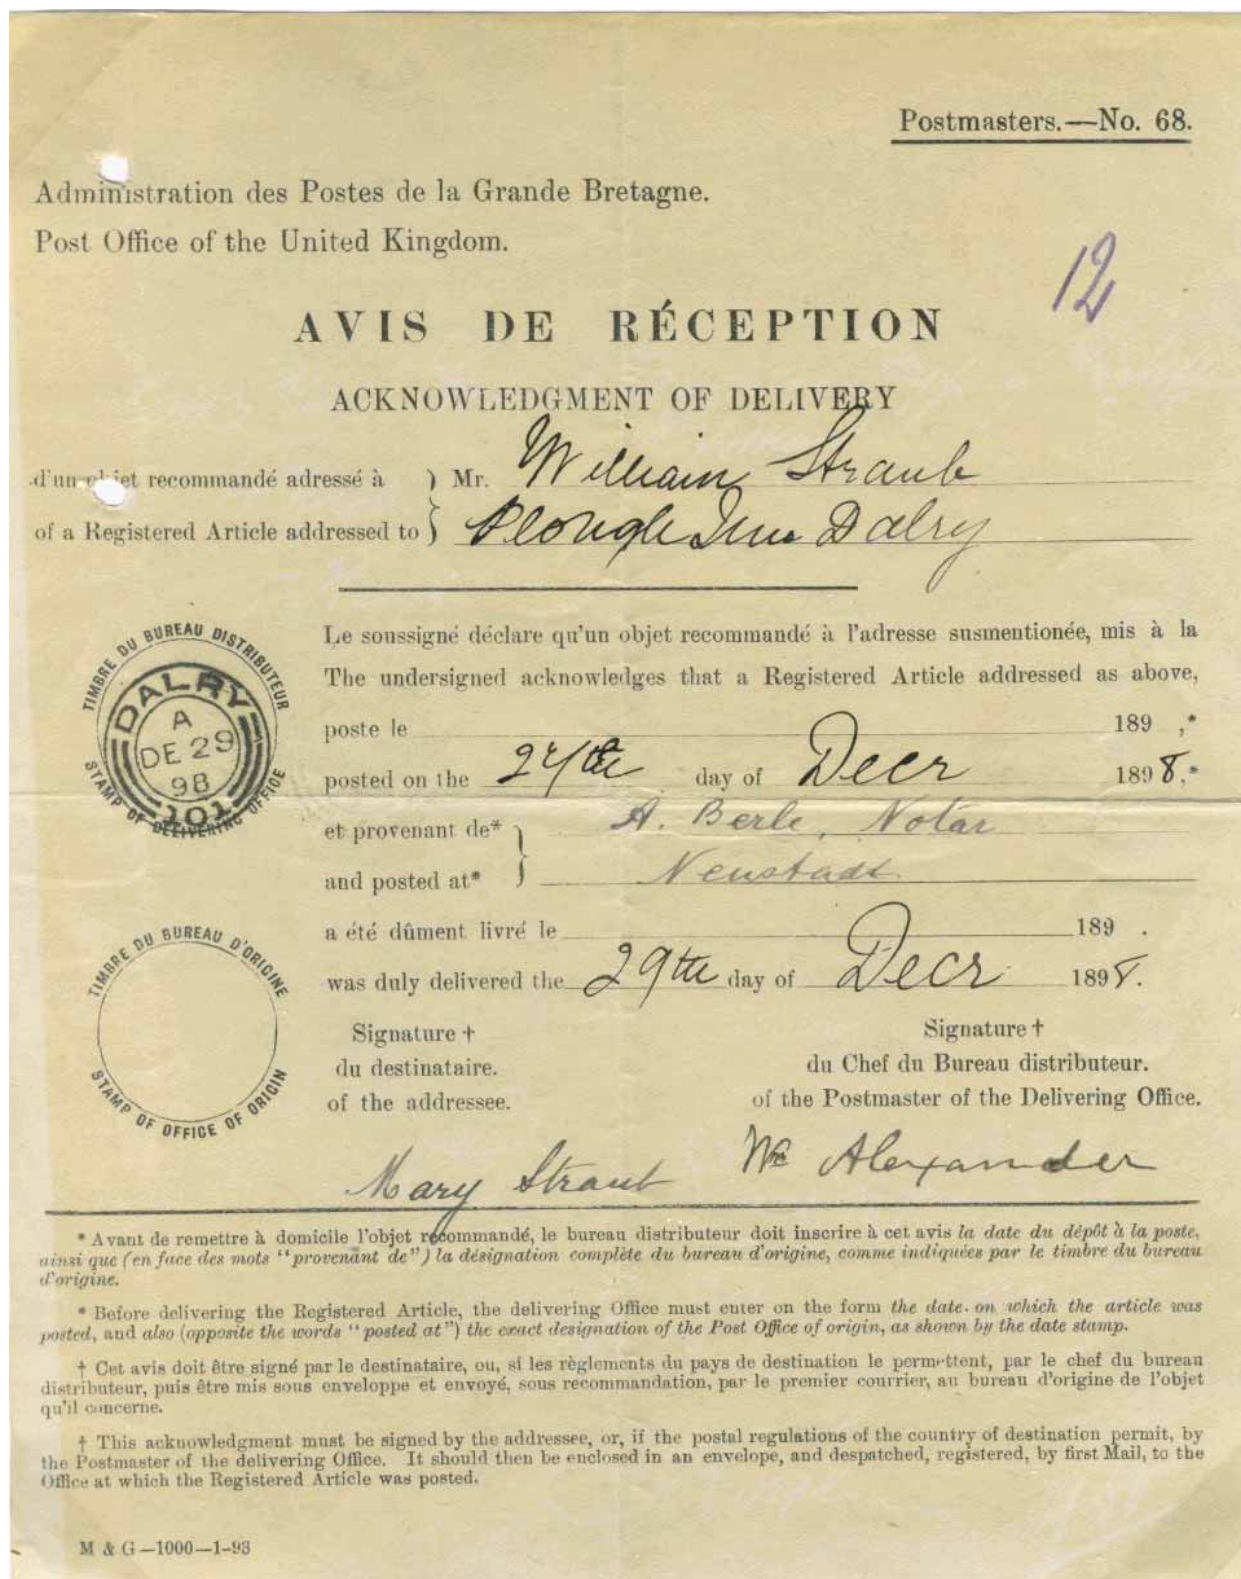 Postmasters.—No. 68.
Administration des Postes de la Grande Bretagne.
Post Office of the United Kingdom.
12
AVIS DE RÉCEPTION
ACKNOWLEDGMENT OF DELIVERY
d'un objet recommandé adressé à } Mr. William Straub
of a Registered Article addressed to } Plough Inn Dalry
TIMBRE DU BUREAU DISTRIBUTEUR
DALRY
A
DE 29
98
101
STAMP OF DELIVERING OFFICE
Le soussigné déclare qu'un objet recommandé à l'adresse susmentionée, mis à la
The undersigned acknowledges that a Registered Article addressed as above,
poste le 189 ,*
posted on the 24th day of Decr 1898.*
et provenant de* } A. Berle, Notar
and posted at* } Neustadt
a été dûment livré le 189 .
was duly delivered the 29th day of Decr 1898.
TIMBRE DU BUREAU D'ORIGINE
STAMP OF OFFICE OF ORIGIN
Signature † Signature †
du destinataire. du Chef du Bureau distributeur.
of the addressee. of the Postmaster of the Delivering Office.
Mary Straub Wm Alexander
* Avant de remettre à domicile l'objet recommandé, le bureau distributeur doit inscrire à cet avis la date du dépôt à la poste,
ainsi que (en face des mots "provenant de") la désignation complète du bureau d'origine, comme indiquées par le timbre du bureau
d'origine.
* Before delivering the Registered Article, the delivering Office must enter on the form the date on which the article was
posted, and also (opposite the words "posted at") the exact designation of the Post Office of origin, as shown by the date stamp.
† Cet avis doit être signé par le destinataire, ou, si les règlements du pays de destination le permettent, par le chef du bureau
distributeur, puis être mis sous enveloppe et envoyé, sous recommandation, par le premier courrier, au bureau d'origine de l'objet
qu'il concerne.
† This acknowledgment must be signed by the addressee, or, if the postal regulations of the country of destination permit, by
the Postmaster of the delivering Office. It should then be enclosed in an envelope, and despatched, registered, by first Mail, to the
Office at which the Registered Article was posted.
M & G—1000—1-93